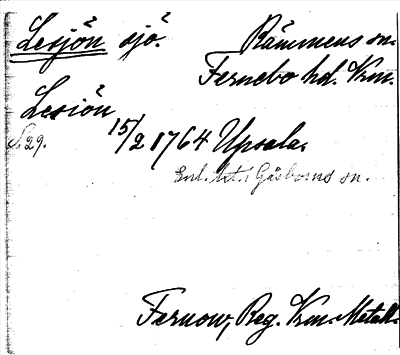 Lesjön sjö. Rämmens sn.
Fernebo hd. Krm.
Lesiön
S. 29. 15/2 1764 Upsala.
Enl. kt. i Gåsborns sn.
Fernow, Reg. Krm. Metall.